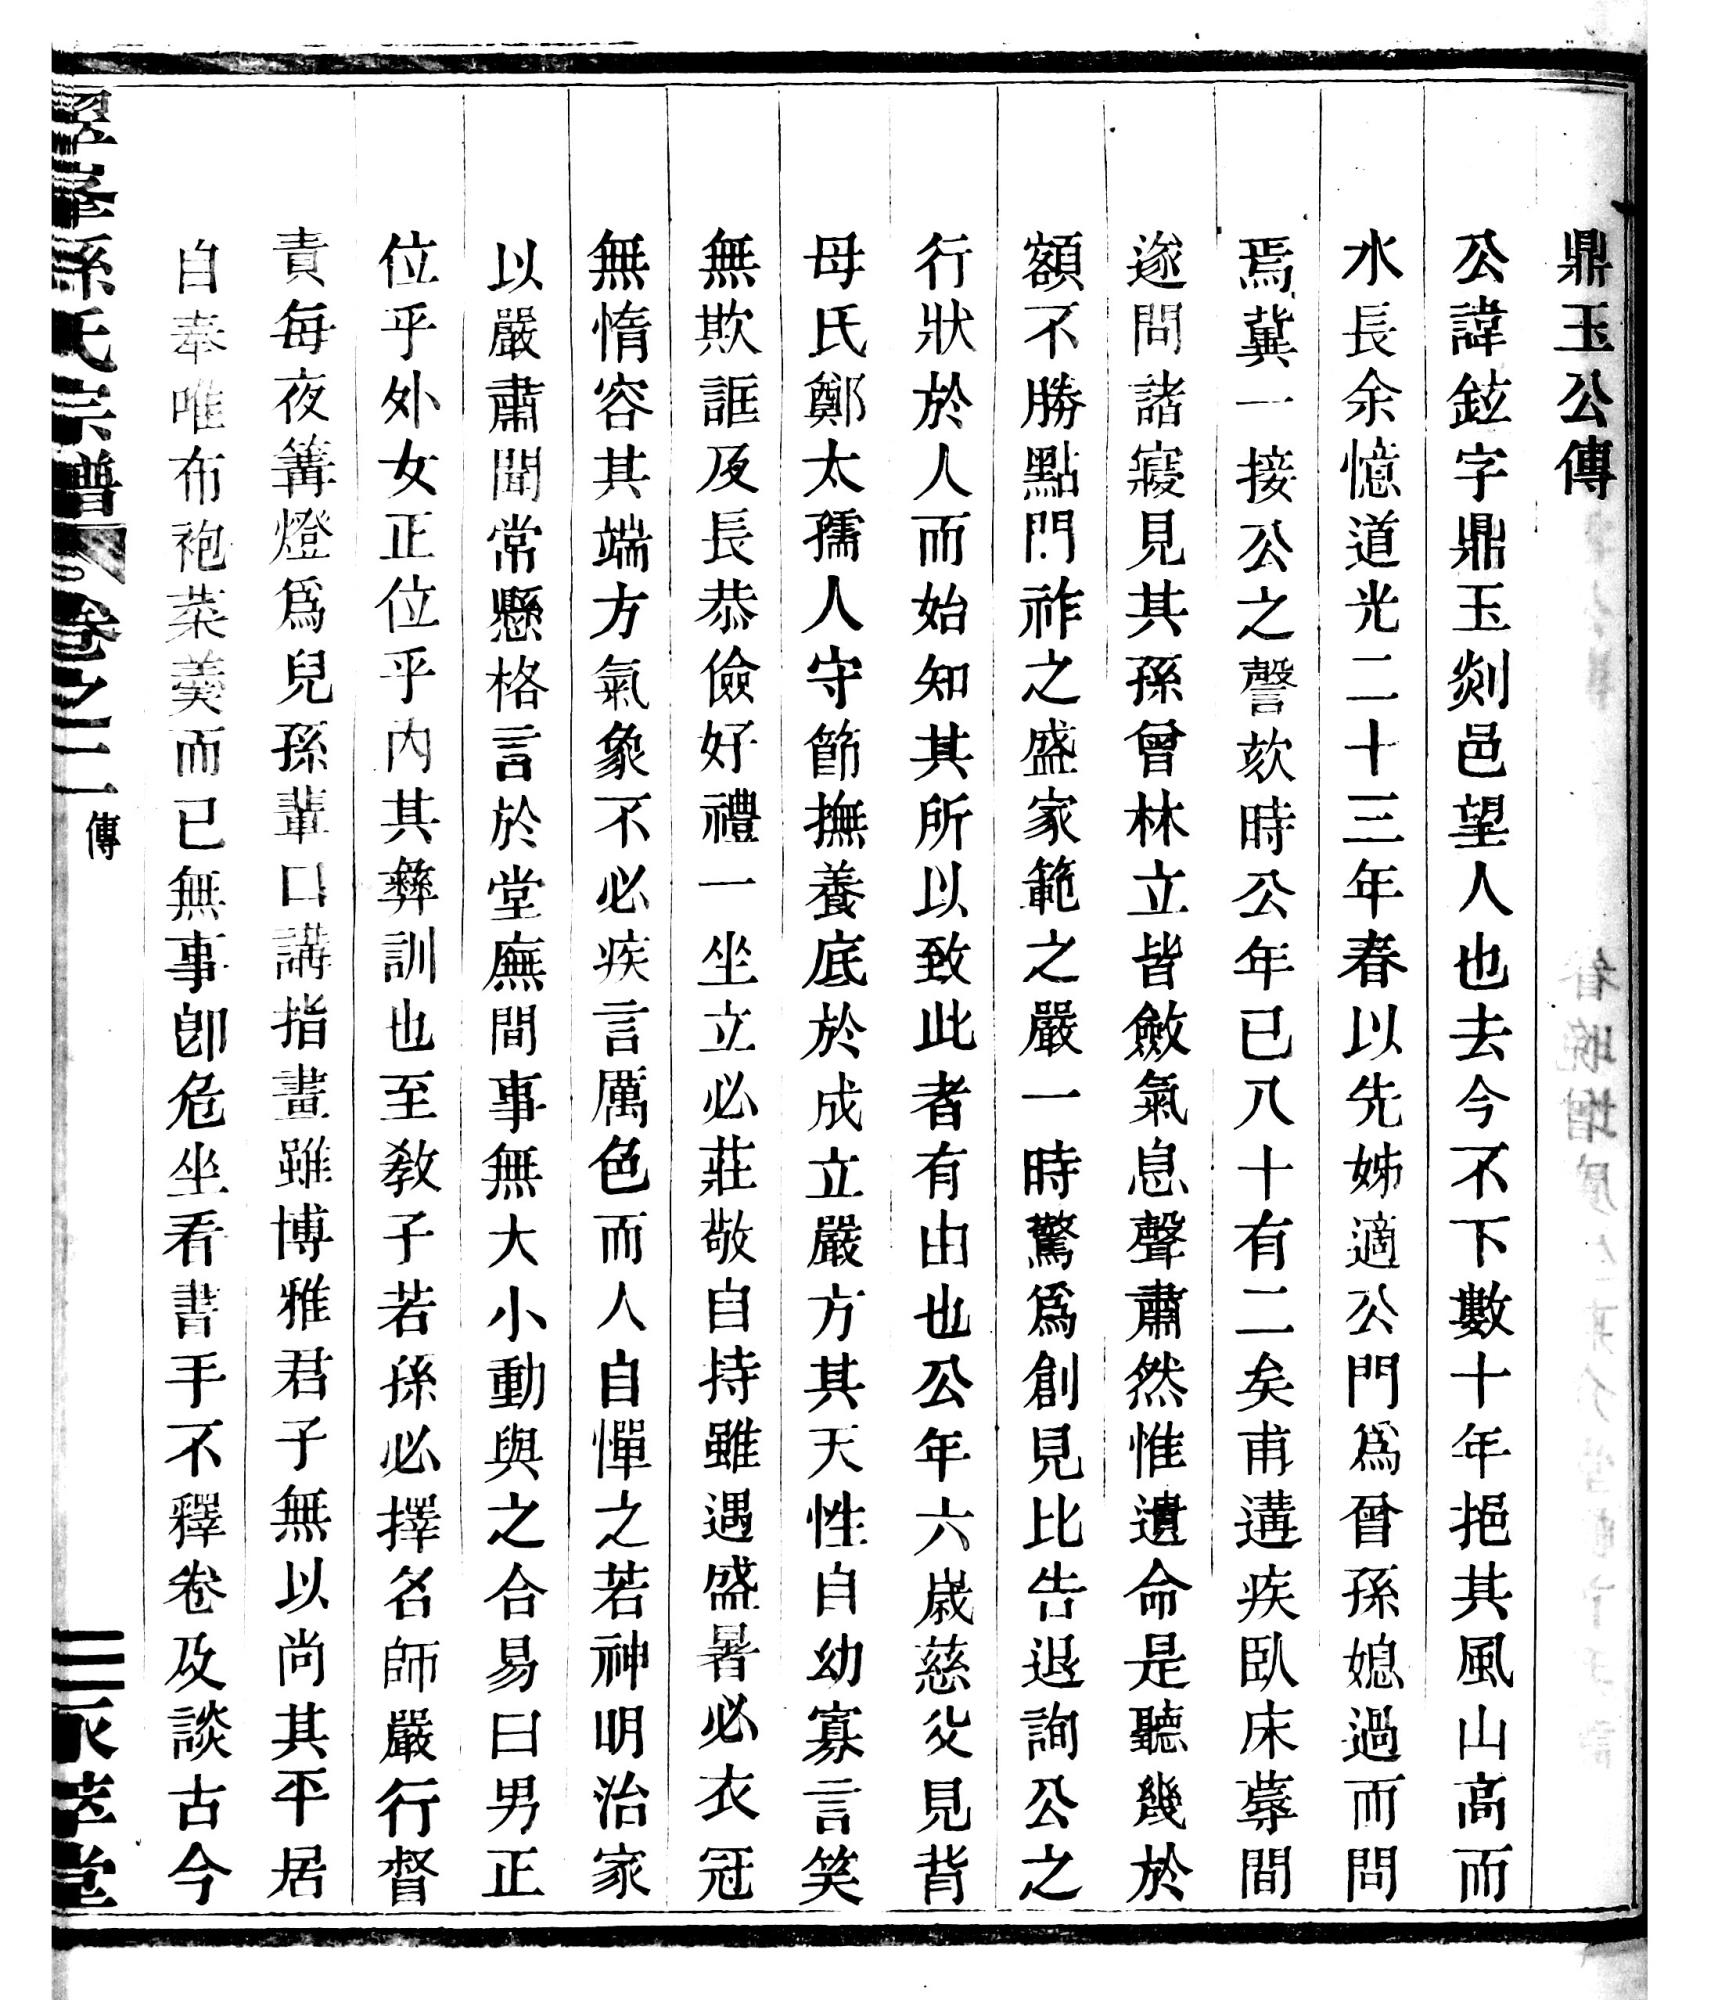 鼎玉公傳
公諱鉉字鼎玉剡邑望人也去今不下數十年挹其風山高而
水長余憶道光二十三年春以先姊適公門爲曾孫媳過而問
焉冀一接公之謦欬時公年已八十有二矣甫遘疾臥床蓐間
遂問諸寢見其孫曾林立皆斂氣息聲肅然惟遺命是聽幾於
額不勝點門祚之盛家範之嚴一時驚爲創見比告退詢公之
行狀於人而始知其所以致此者有由也公年六歲慈父見背
母氏鄭太孺人守節撫養底於成立嚴方其天性自幼寡言笑
無欺誑及長恭儉好禮一坐立必莊敬自持雖遇盛暑必衣冠
無惰容其端方氣象不必疾言厲色而人自憚之若神明治家
以嚴肅聞常懸格言於堂廡間事無大小動與之合易曰男正
位乎外女正位乎內其彝訓也至教子若孫必擇名師嚴行督
責每夜篝燈爲兒孫輩口講指畫雖博雅君子無以尚其平居
自奉唯布袍菜羹而已無事卽危坐看書手不釋卷及談古今
孫氏宗譜 卷之二 傳 萃堂